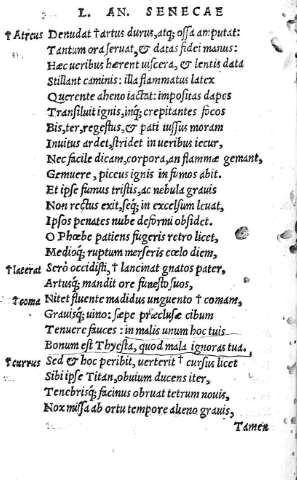 L. AN. SENECAE
†Atreus Denudat †artus durus, atq; ossa amputat:
Tantum ora seruat, & datas fidei manus:
Hæc ueribus hærent uiscera, & lentis data
Stillant caminis: illa flammatus latex
Querente aheno iactat: impositas dapes
Transiluit ignis, inq; crepitantes focos
Bis, ter, regestus, & pati iussus moram
Inuitus ardet, stridet in ueribus iecur,
Nec facile dicam, corpora, an flammæ gemant,
Gemuere, piceus ignis in fumos abit.
Et ipse fumus tristis, ac nebula grauis
Non rectus exit, seq; in excelsum leuat,
Ipsos penates nube deformi obsidet.
O Phœbe patiens fugeris retro licet,
Medioq; ruptum merseris cœlo diem,
†lacerat Serò occidisti, † lancinat gnatos pater,
Artusq; mandit ore funesto suos,
†coma Nitet fluente madidus unguento † comam,
Grauisq; uino: sæpe præclusæ cibum
Tenuere fauces: in malis unum hoc tuis
Bonum est Thyesta, quod mala ignoras tua.
†currus Sed & hoc peribit, uerterit † cursus licet
Sibi ipse Titan, obuium ducens iter,
Tenebrisq; facinus obruat tetrum nouis,
Nox missa ab ortu tempore alieno grauis,
Tamen